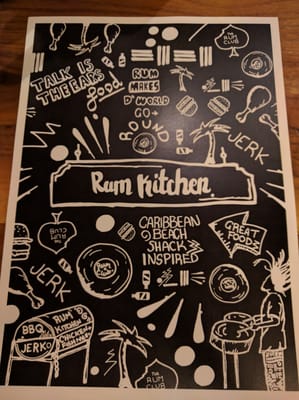 THE
RUM
CLUB
TALK IS
THE EARS
food
RUM
MAKES
D' WORLD
GO
ROUND
JERK
Rum Kitchen
RUM
CLUB
CARIBBEAN
BEACH
SHACK
INSPIRED
GREAT
FOOD
JERK
BBQ
JERK
RUM
KITCHEN
CHICKEN
THE
RUM CLUB